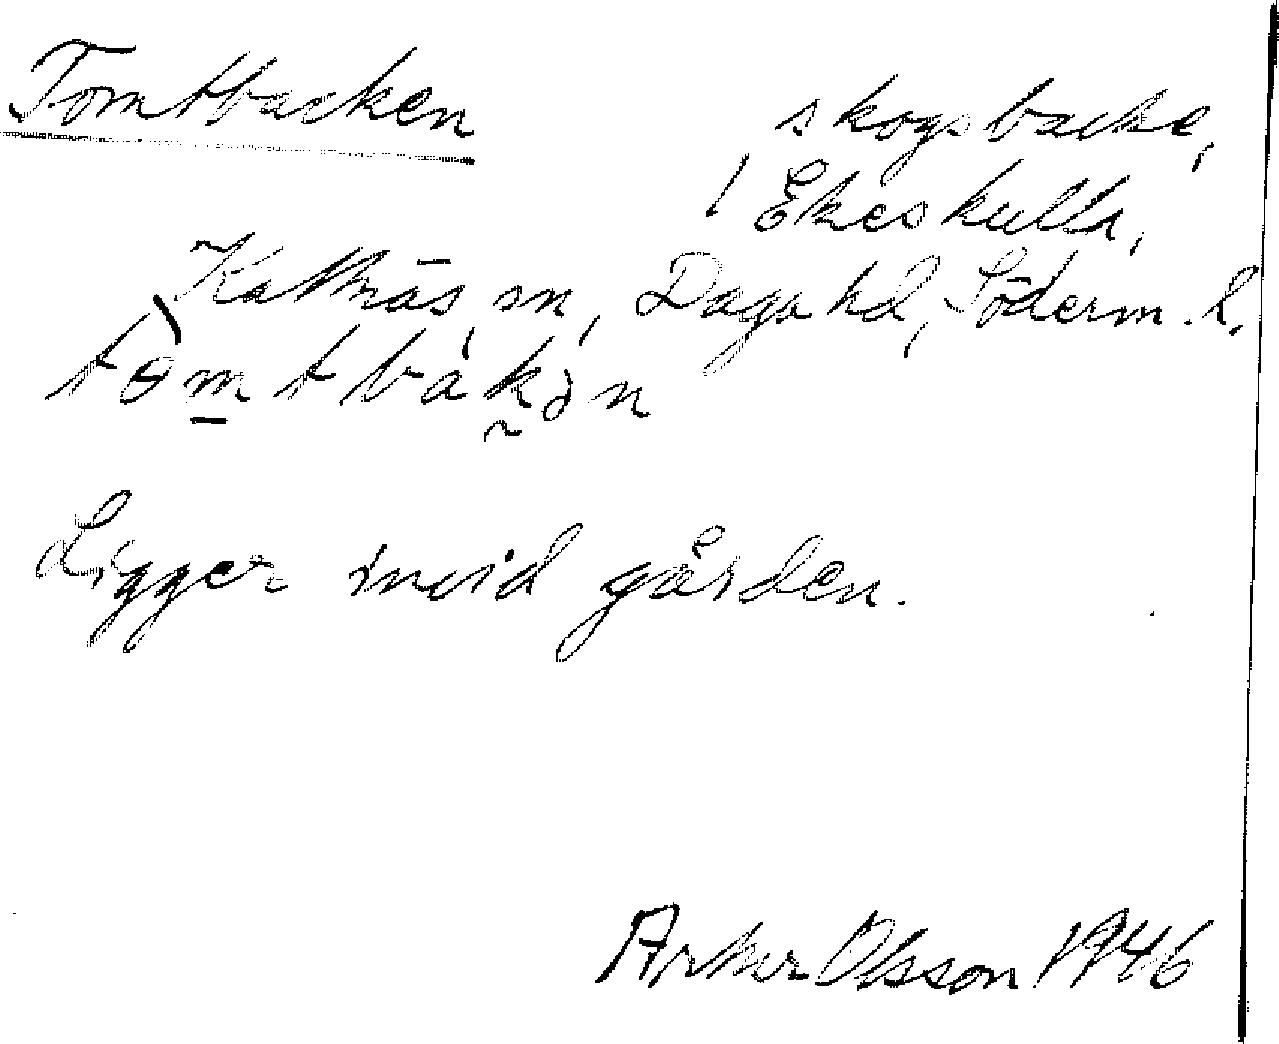 Tomtbacken
skogsbacke,
/ Ekeskulla,
Kattnäs, sn, Daga hd, Söderm. l.
tòmtbàkən
Ligger invid gården.
Artur Olsson 1946